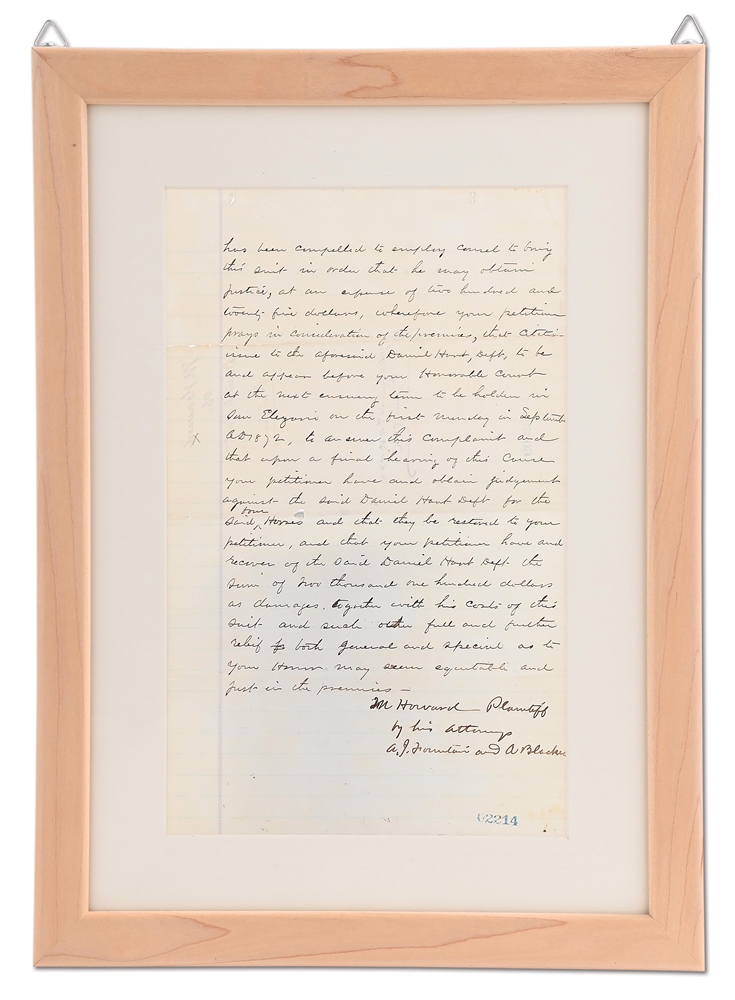 has been compelled to employ counsel to bring
this suit in order that he may obtain
justice, at an expense of two hundred and
twenty five dollars, wherefore your petition
prays in consideration of the premises, that citation
issue to the aforesaid Daniel Hart, Deft, to be
and appear before your Honorable Court
at the next ensuing term to be holden in
San Elezario on the first Monday in Septemb
AD 1872, to answer this complaint and
that upon a final hearing of this cause
your petitioner have and obtain judgement
against the said Daniel Hart Deft for the
four
said Horses and that they be restored to your
petitioner, and that your petitioner have and
recover of the said Daniel Hart Deft the
sum of Two thousand one hundred dollars
as damages, together with his costs of this
suit and such other full and further
relief both general and special as to
your Honor may seem equitable and
just in the premises —
M Howard Plaintiff
by his Attorneys
A. J. Fountain and A Blacke
02214